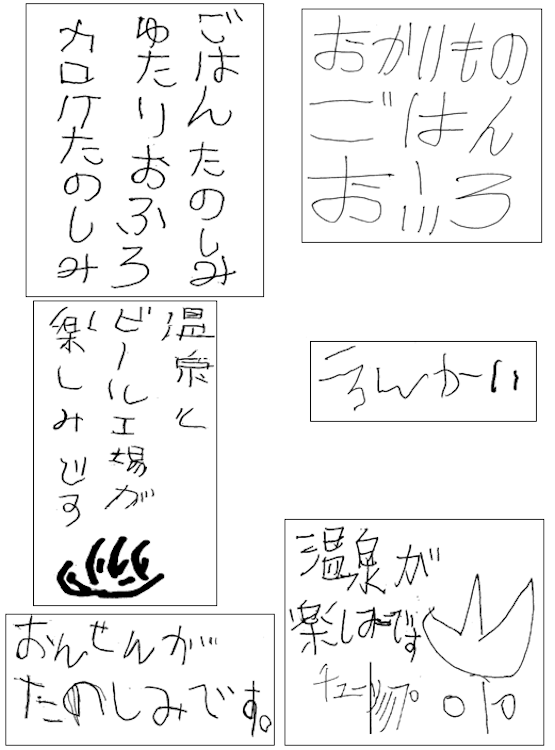 ごはんたのしみ
ゆたりおふろ
カロケたのしみ
おかりもの
ごはん
おふろ
温泉と
ビール工場が
楽しみです
えんかい
温泉が
楽しみです
チューリップ
おんせんが
たのしみです。